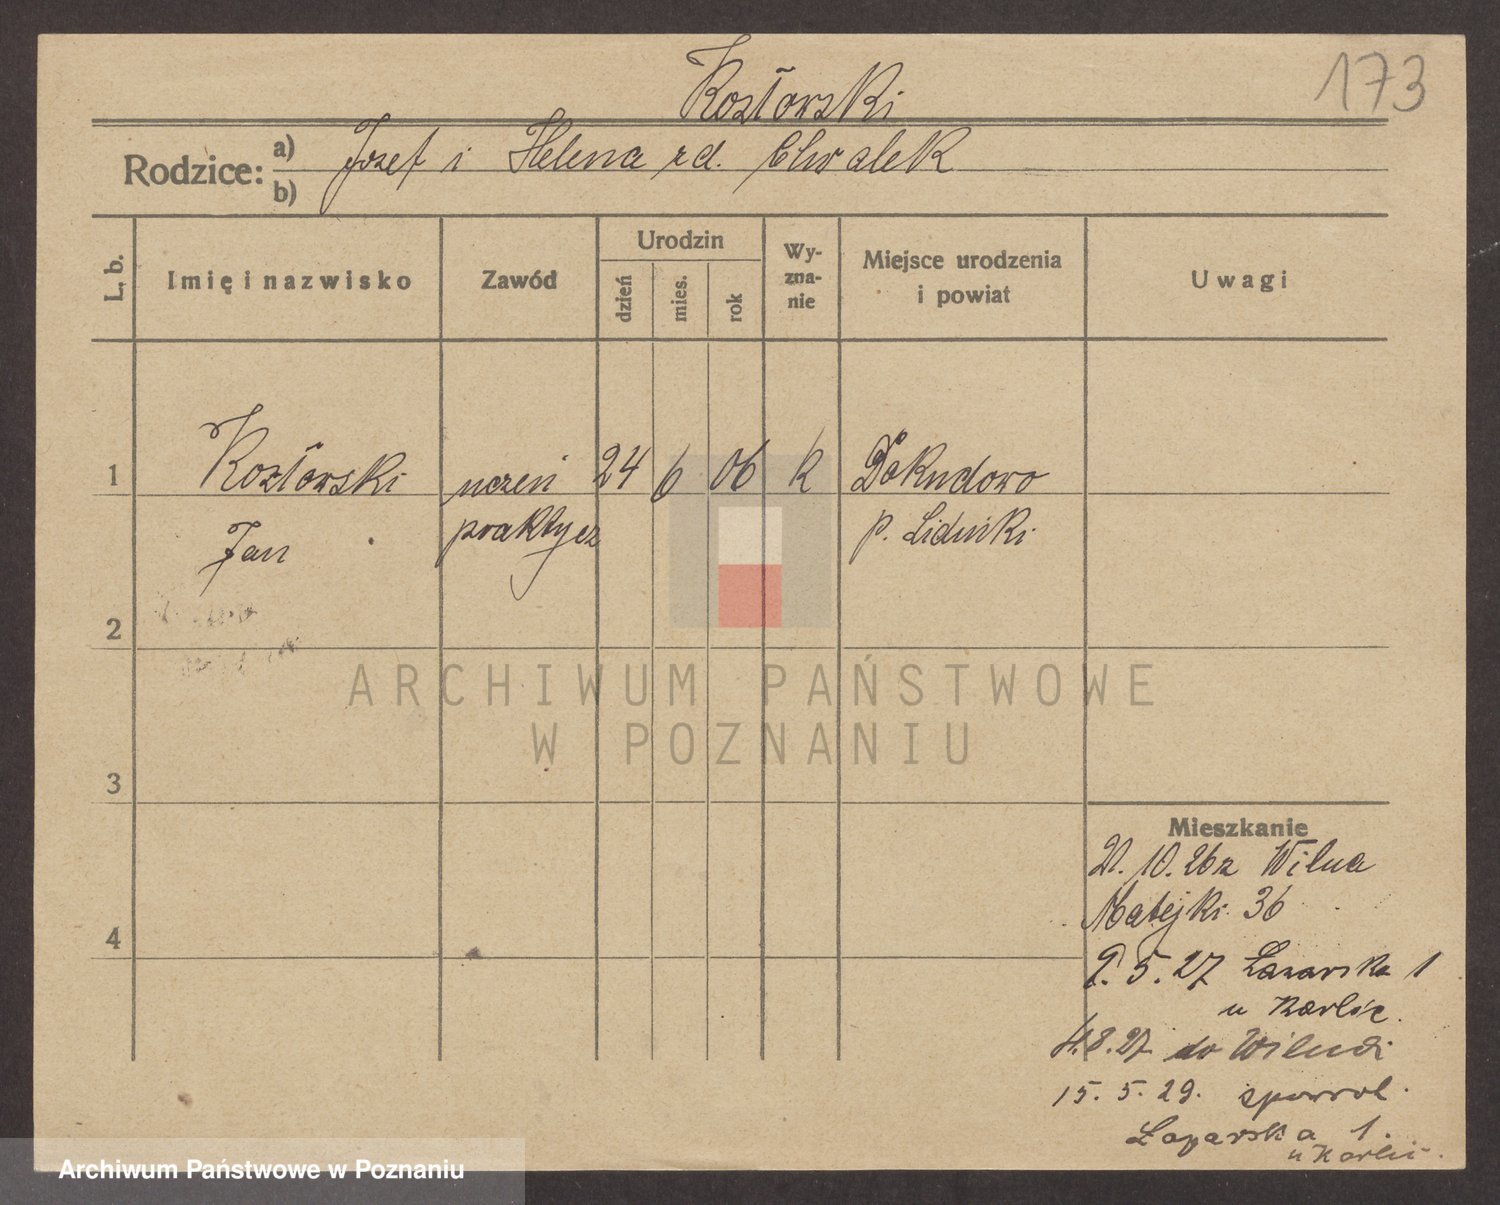 173
Kozłowski
Rodzice: a) Józef i Helena zd. Chwałek
b)
L. b.
Imię i nazwisko
Zawód
Urodzin
dzień
mies.
rok
Wy-
zna-
nie
Miejsce urodzenia
i powiat
Uwagi
1 Kozłowski uczeń 24 6 06 k Dokudowo
Jan praktycz p. Lidzki
2
3
4
Mieszkanie
21. 10. 26 z Wilna
Matejki 36
2. 5. 27 Łazarska 1
u Karlic
4.8.27 do
15. 5. 29. 
Łazarska 1.
u Karlic
ARCHIWUM PAŃSTWOWE
W POZNANIU
Archiwum Państwowe w Poznaniu